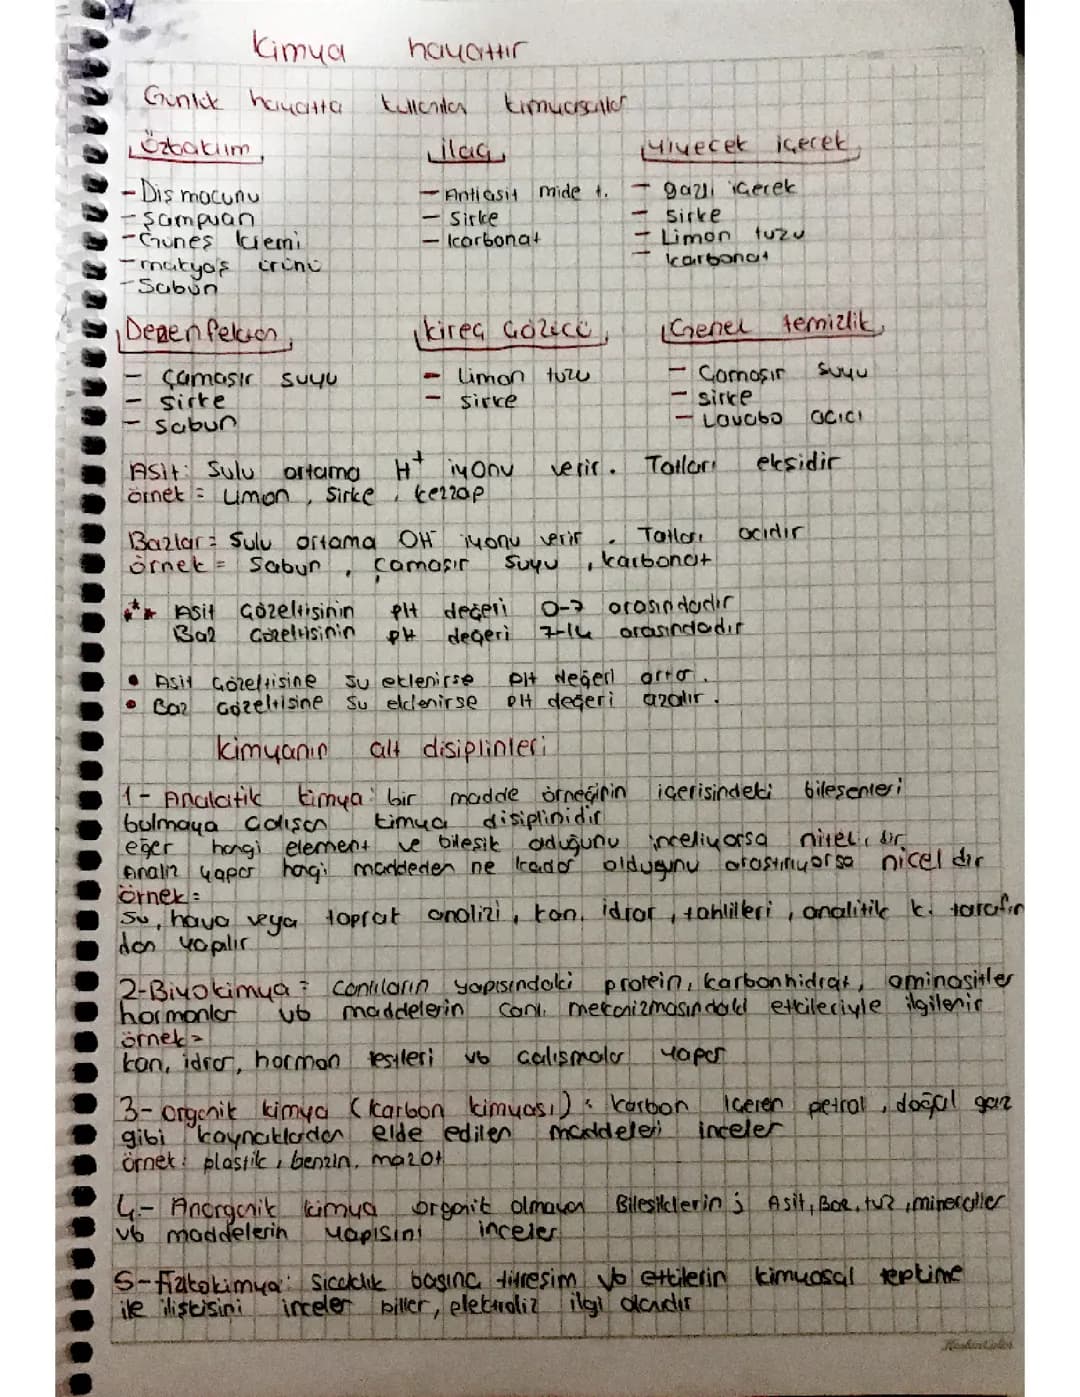 Kimya hayattır
Günlük hayatta kullanılan kimyasallar
Özbakım İlaç Yiyecek içecek
- Diş macunu - Antiasit mide t. - gazlı içecek
- Şampuan - Sirke - sirke
- Güneş kremi - karbonat - Limon tuzu
- makyaj ürünü - karbonat
- Sabun
Dezenfektan kireç Çözücü Genel temizlik
- Çamaşır suyu - Limon tuzu - Çamaşır suyu
- Sirke - sirke - sirke
- Sabun - Lavabo açıcı
Asit: Sulu ortama H⁺ iyonu verir. Tatları ekşidir
örnek = Limon, Sirke, kezzap
Bazlar: Sulu ortama OH⁻ iyonu verir. Tatları acıdır
örnek = Sabun, Çamaşır Suyu, karbonat
** Asit Çözeltisinin pH değeri 0-7 arasındadır
Baz Çözeltisinin pH değeri 7-14 arasındadır
• Asit Çözeltisine su eklenirse pH değeri artar.
• Baz Çözeltisine su eklenirse pH değeri azalır.
kimyanın alt disiplinleri
1- Analatik kimya: bir madde örneğinin içerisindeki bileşenleri
bulmaya Çalışan kimya disiplinidir
eğer hangi element ve bileşik olduğunu inceliyorsa nitel dir
Analiz yapar hangi maddeden ne kadar olduğunu araştırıyorsa nicel dir
örnek =
Su, hava veya toprak analizi, kan, idrar, tahlilleri, analitik k. tarafın
dan yapılır
2-Biyokimya = canlıların yapısındaki protein, karbonhidrat, aminoasitler
hormonlar vb maddelerin canlı mekanizmasındaki etkileriyle ilgilenir
örnek =
kan, idrar, hormon testleri vb Çalışmalar yapar
3- organik kimya (karbon kimyası) : karbon İçeren petrol, doğal gaz
gibi kaynaklardan elde edilen maddeleri inceler
örnek : plastik, benzin, mazot
4- Anorganik kimya organik olmayan Bileşiklerin ; Asit, Baz, tuz, mineraller
vb maddelerin yapısını inceler
5-Fizikokimya: Sıcaklık basınç titreşim vb etkilerin kimyasal tepkime
ile ilişkisini inceler piller, elektroliz ilgi alanıdır